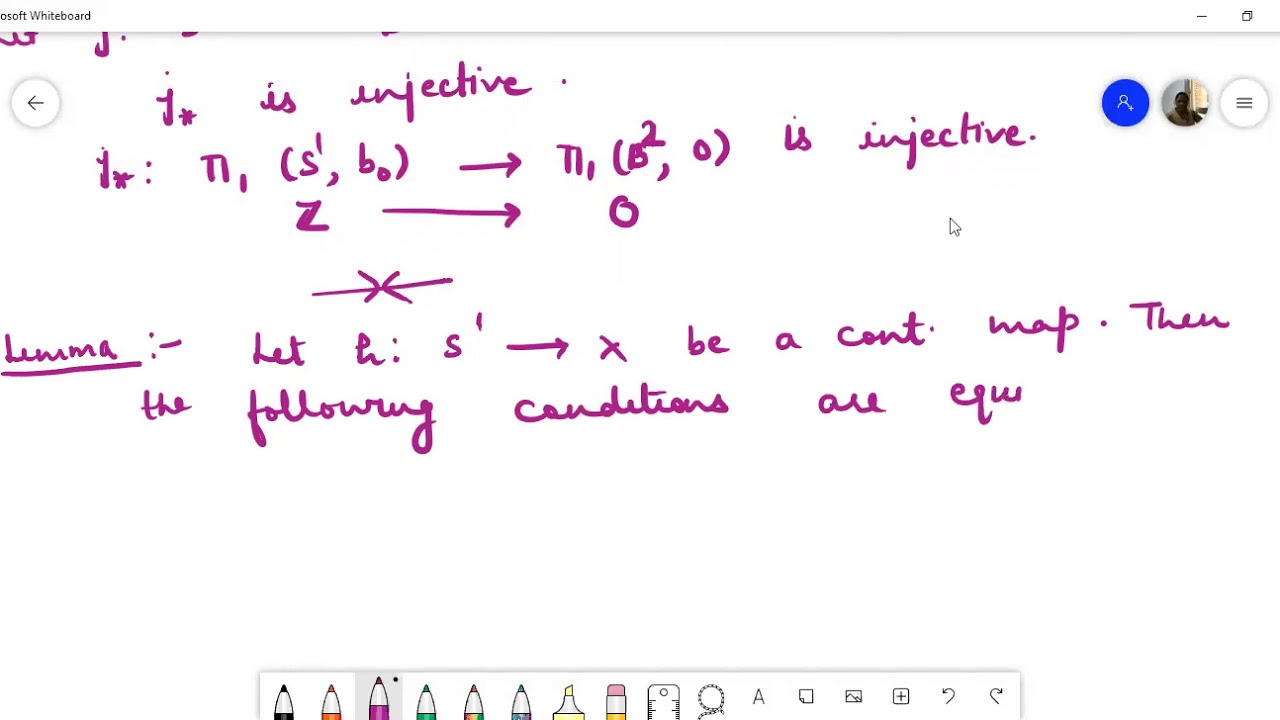 osoft Whiteboard
j* is injective.
j*: π₁ (S¹, b₀) → π₁ (B², 0) is injective.
Z → 0
Lemma :- Let h: S¹ → X be a cont. map. Then
the following conditions are equi
A